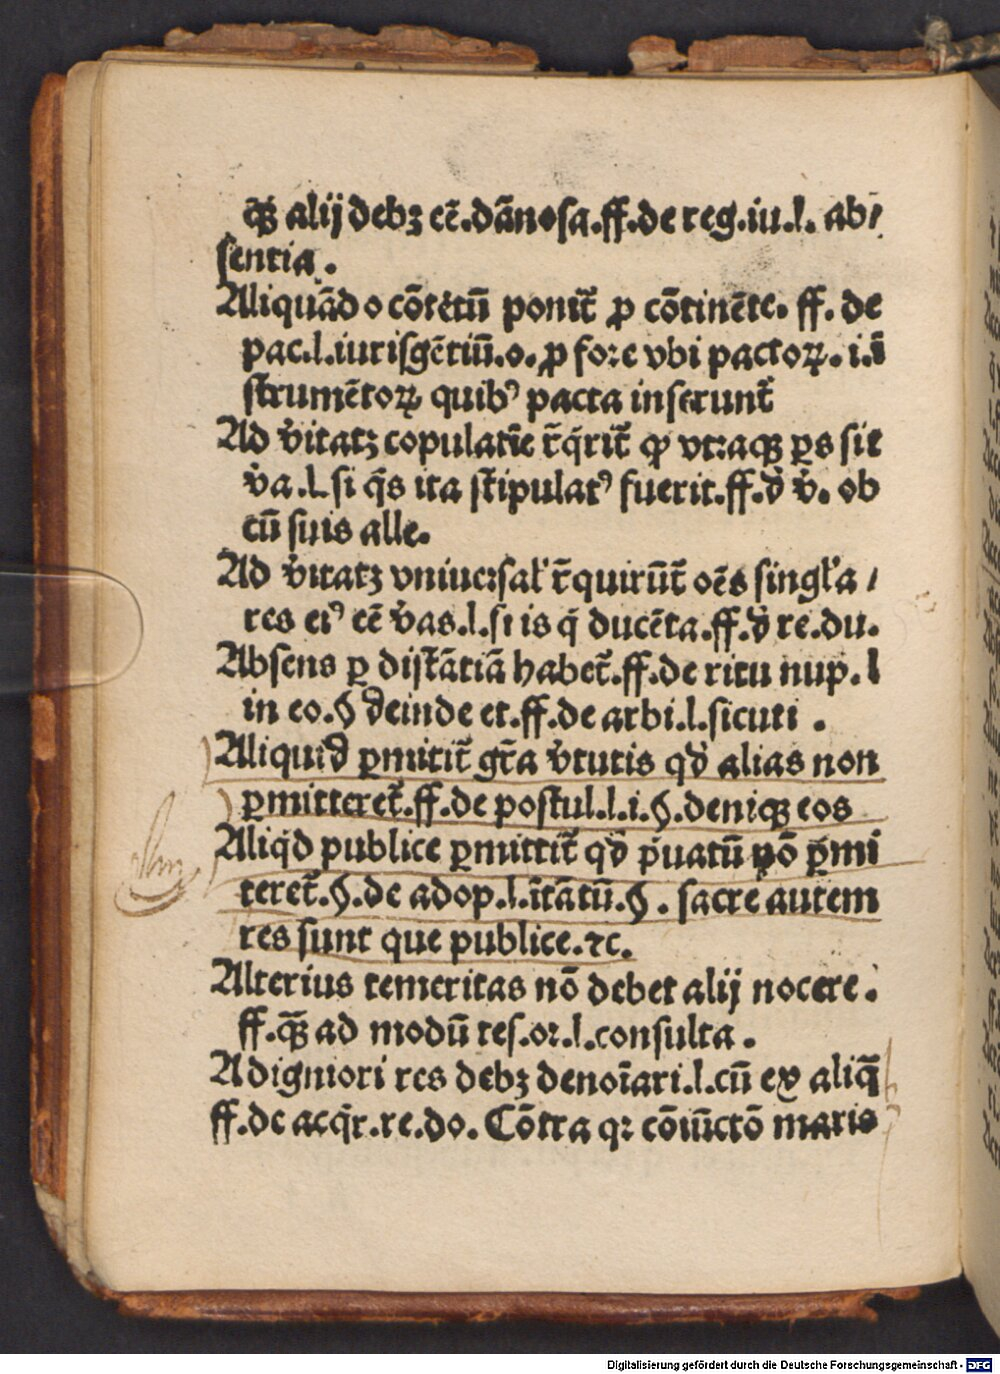 q̃ꝫ alij debꝫ eē.dãnosa.ff.de reg.iu.l. ab/
sentia.
Aliquãdo cõtẽtũ ponit̃ ꝓ cõtinẽte. ff. de
pac.l.iurisgẽtiũ.o.ꝓ fore vbi pactoꝝ.i.ĩ
strumẽtoꝝ quibꝰ pacta inserunt̃
Ad v̓itatꝫ copulatĩe r̃q̃rit̃ ꝙ vtraqꝫ ꝑs sit
v̓a.l.si q̃s ita stipulatꝰ fuerit.ff.d̓ v̓. ob
cũ suis alle.
Ad v̓itatꝫ vniuersal̓ r̃quirũt̃ oẽs singl̓a/
res eiꝰ eẽ v̓as.l.si is q̃ ducẽta.ff.d̓ re.du.
Absens ꝑ distãtiã habet̃.ff.de ritu nup.l
in eo.§ deinde et.ff.de arbi.l.sicuti.
Aliquid ꝑmitit̃ gr̃a v̓tutis qd̓ alias non
ꝑmitteret̃.ff.de postul.l.i.§.deniqꝫ eos
Aliq̓d publice ꝑmittit̃ qd̓ p̓uatũ nõ ꝑmi
teret̃.§.de adop.l.ĩtãtũ.§. sacre autem
res sunt que publice.⁊c.
Alterius temeritas nõ debet alij nocere.
ff.q̃ꝫ ad modũ tes.or.l.consulta.
A digniori res debꝫ denoĩari.l.cũ ex aliq̃
ff.de acq̓r.re.do. Cõtra qꝛ cõiũctõ maris
Digitalisierung gefördert durch die Deutsche Forschungsgemeinschaft - DFG